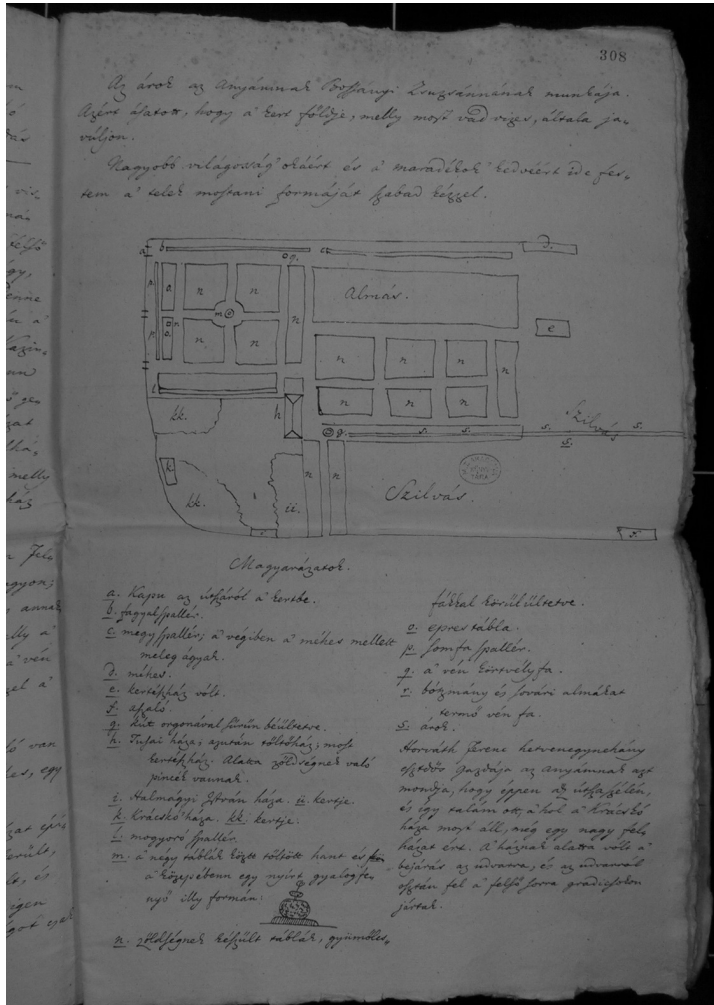 308
Az árok az Anyámnak Bossányi Zsuzsánnának munkája.
Azért ásatott, hogy a' kert földje, melly most vad vizes, általa ja-
vúljon.
Nagyobb világosság' okáért és a' maradékok' kedvéért ide fes-
tem a' telek mostani formáját szabad kézzel.
a b c d.
g.
a. n n
m n Almás. e
n n n n n n
n n n
l h
kk. g. s. s. s. Szilvás s.
s.
k n n
kk. ii. Szilvás.
i f.
Magyarázatok.
a. Kapu az útszáról a' kertbe.
b. fagyal spallér.
c. megy spallér; a' végiben a' méhes mellett
meleg ágyak.
d. méhes.
e. kertészház vólt.
f. aszaló.
g. kút orgonával sűrűn beültetve.
h. háza; azután töltőház; most
kertészház. Alatta zöldségnek való
pinczék vannak.
i. Halmágyi István háza. ii. kertje.
k. Krácskó háza. kk. kertje.
l. mogyoró spallér.
m. a' négy táblák köztt töltött hant és
a' közepébenn egy nyírt gyalogfe-
nyő illy formán:
n. zöldségnek készült táblák, gyümölcs-
fákkal körűlültetve.
o. epres tábla.
p. somfa spallér.
q. a' vén körtvélyfa.
r. és almákat
termő vén fa.
s. árok.
Horváth Ferenc hetvenegynehány
esztdős gazdája az Anyámnak azt
mondja, hogy éppen az útszaszélén,
és így talám ott, a' hol a' Krácskó
háza most áll, még egy nagy fel-
házat ére. A' háznak alatta vólt a'
bejárás az udvarra, és az udvarról
osztán fel a' felső sorra grádicsokon
jártak.